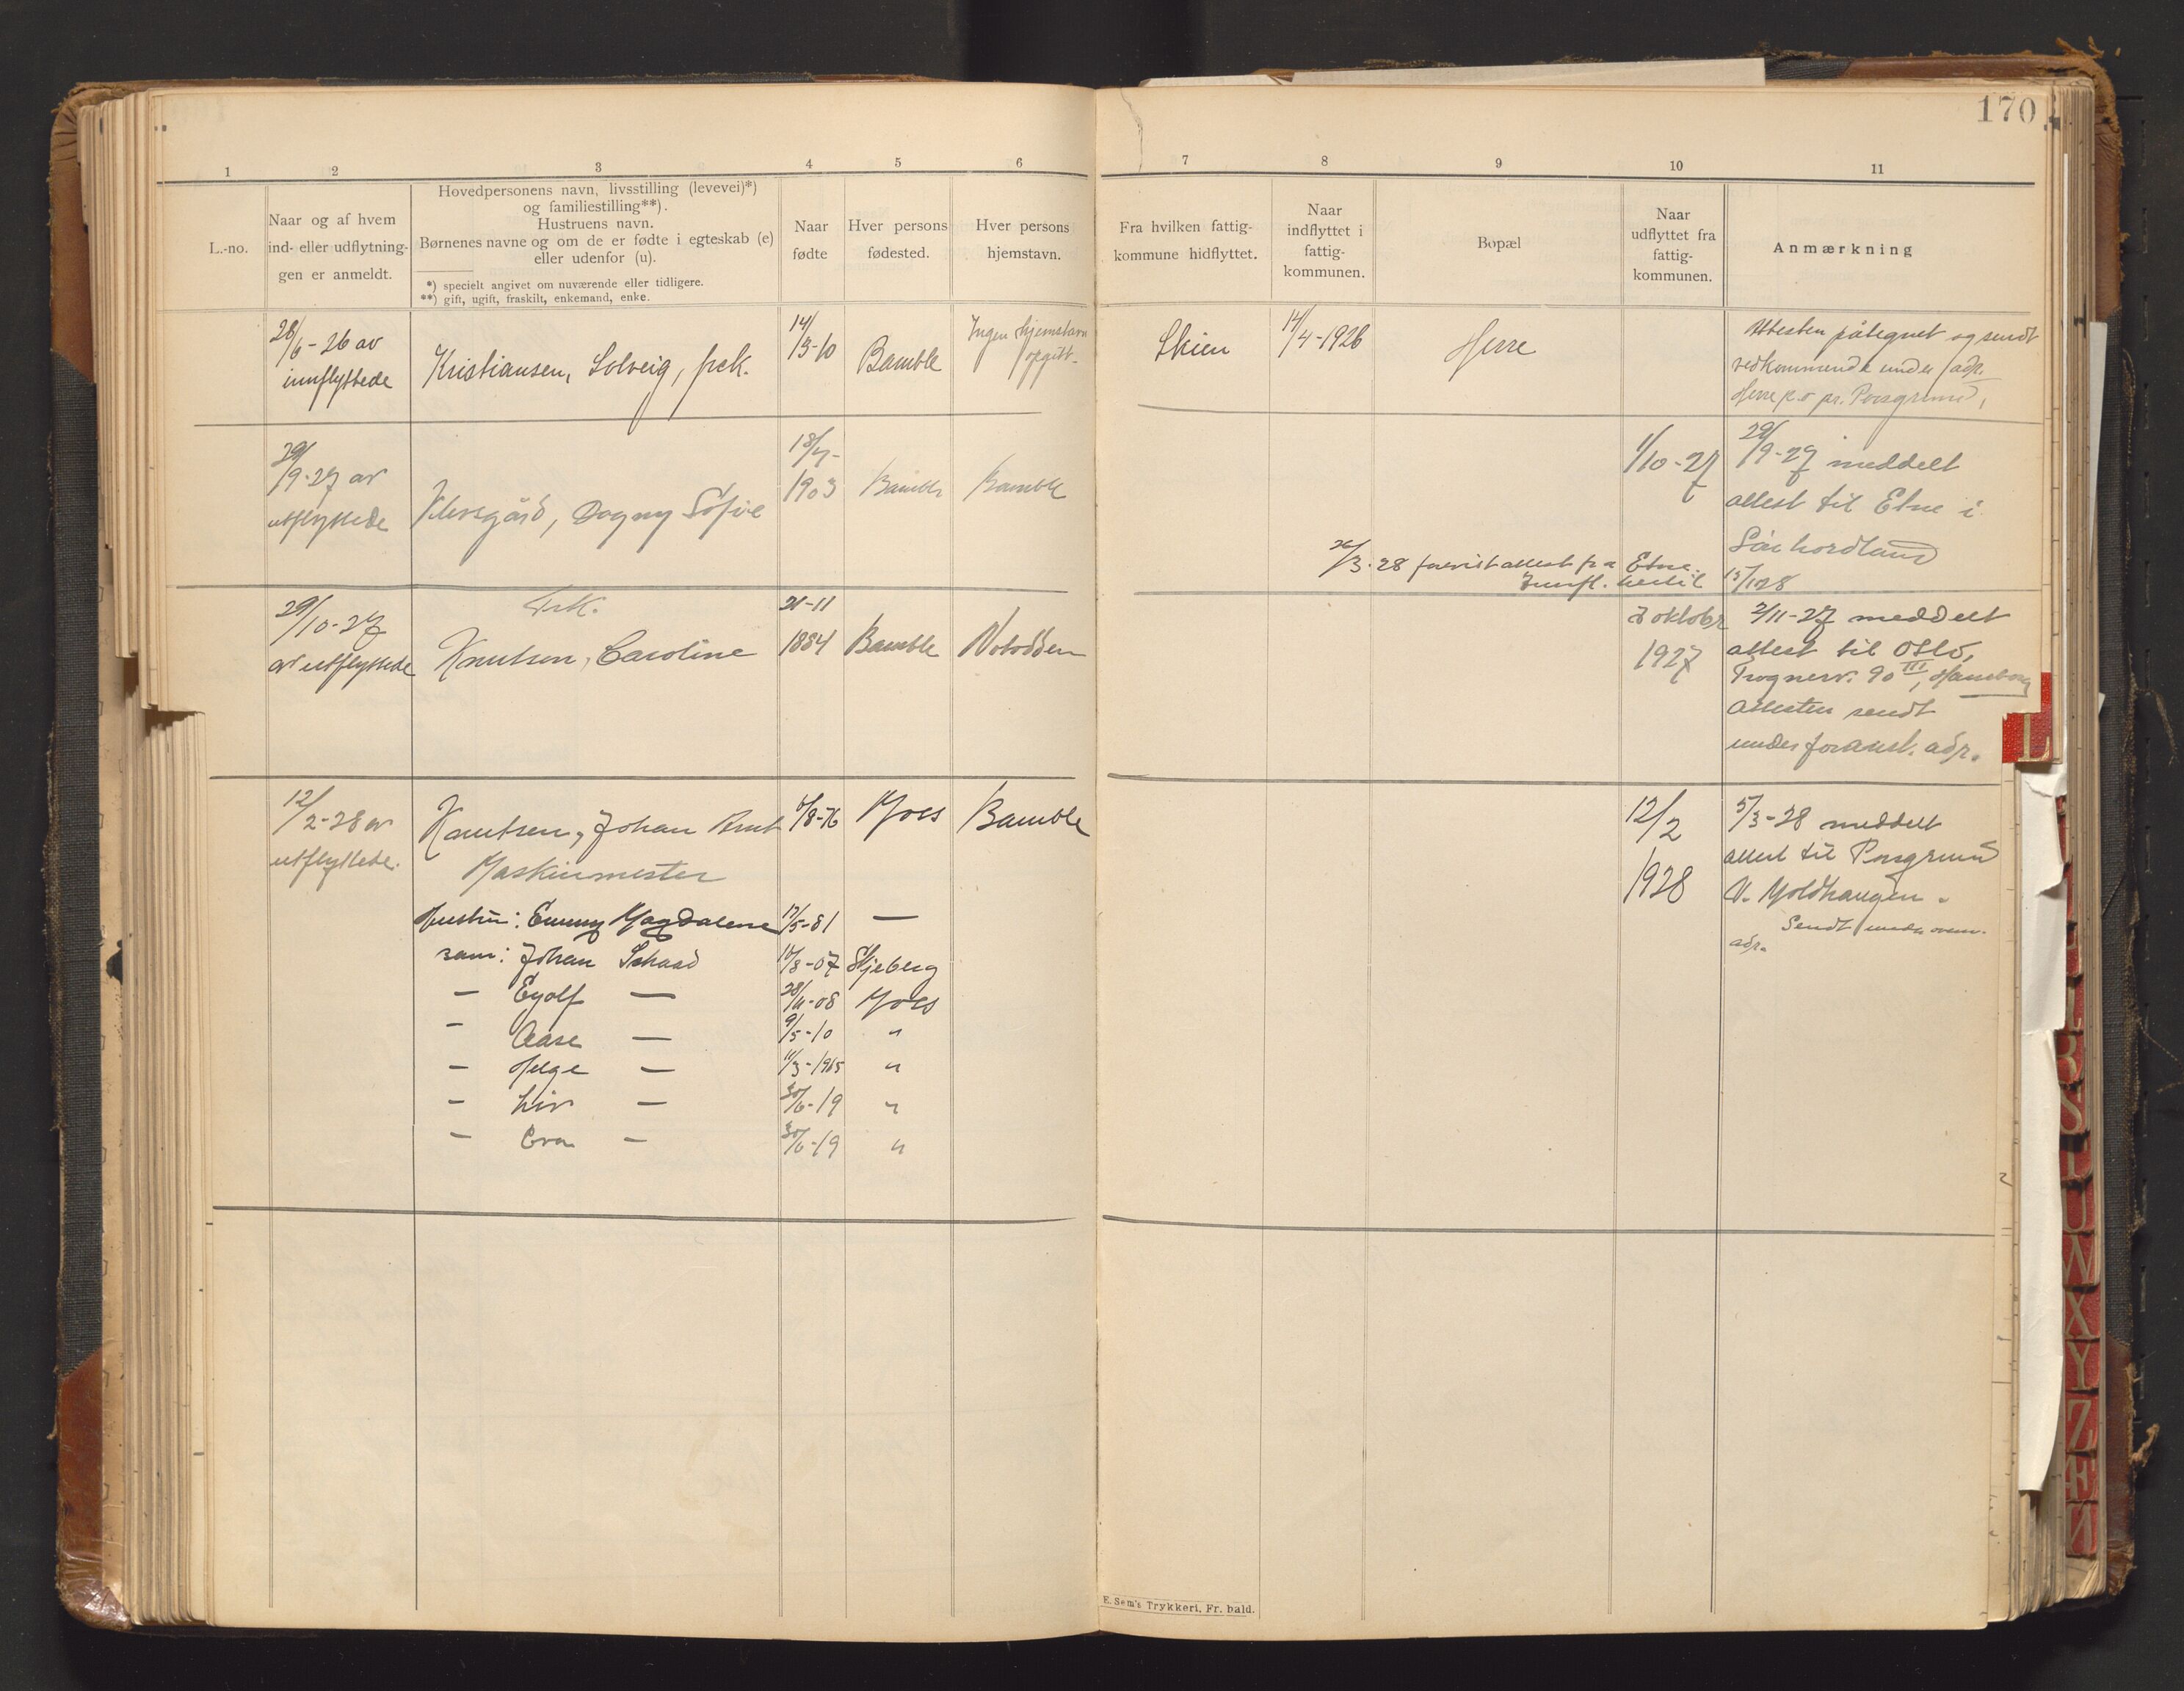 170
1 2 3 4 5 6 7 8 9 10 11
L.-no.
Naar og af hvem
ind- eller udflytning-
gen er anmeldt.
Hovedpersonens navn, livsstilling (levevei)*)
og familiestilling**).
Hustruens navn.
Børnenes navne og om de er fødte i egteskab (e)
eller udenfor (u).
*) specielt angivet om nuværende eller tidligere.
**) gift, ugift, fraskilt, enkemand, enke.
Naar
fødte
Hver persons
fødested.
Hver persons
hjemstavn.
Fra hvilken fattig-
kommune hidflyttet.
Naar
indflyttet i
fattig-
kommunen.
Bopæl
Naar
udflyttet fra
fattig-
kommunen.
Anmærkning
28/6-26 av
innflyttede
Kristiansen, Solveig, frk.
14/3-10
Bamble
Ingen hjemstavn
opgitt.
Skien
14/4-1926
Herre
Attesten påtegnet og sendt
vedkommende under adr.
Herre p.o pr. Porsgrund,
29/9-27 av
utflyttede
Dagny Sofie
18/7-
1903
Bamble
Bamble
1/10-27
29/9-27 meddelt
attest til Etne i
Sønhordland
26/3-28 attest fra Etne.
Innfl. hertil 15/1 28
29/10-27
av utflyttede
Frk.
Knutsen, Caroline
21-11
1884
Bamble
Notodden
7 oktober
1927
2/11-27 meddelt
attest til Oslo,
Frognerv. 90 III,
Attesten sendt
under foranst. adr.
12/2-28 av
utflyttede.
Knutsen, Johan
Maskinmester
6/8-76
Moss
Bamble
12/2
1928
5/3-28 meddelt
attest til Porsgrund
V. Moldhaugen.
Sendt under ovenn.
adr.
Hustru: Emmy Magdalene 17/5-81 —
barn: Johan Schaad 10/8-07 Skjeberg
— Eyolf — 28/11-08 Moss
— Aase — 9/5-10 "
— Helge — 11/3-1915 "
— Liv — 30/6-19 "
— Eva — 30/6-19 "
E. Sem's Trykkeri, Fr. hald.
L
R
S
T
U
W
X
Y
Z
Æ
Ø